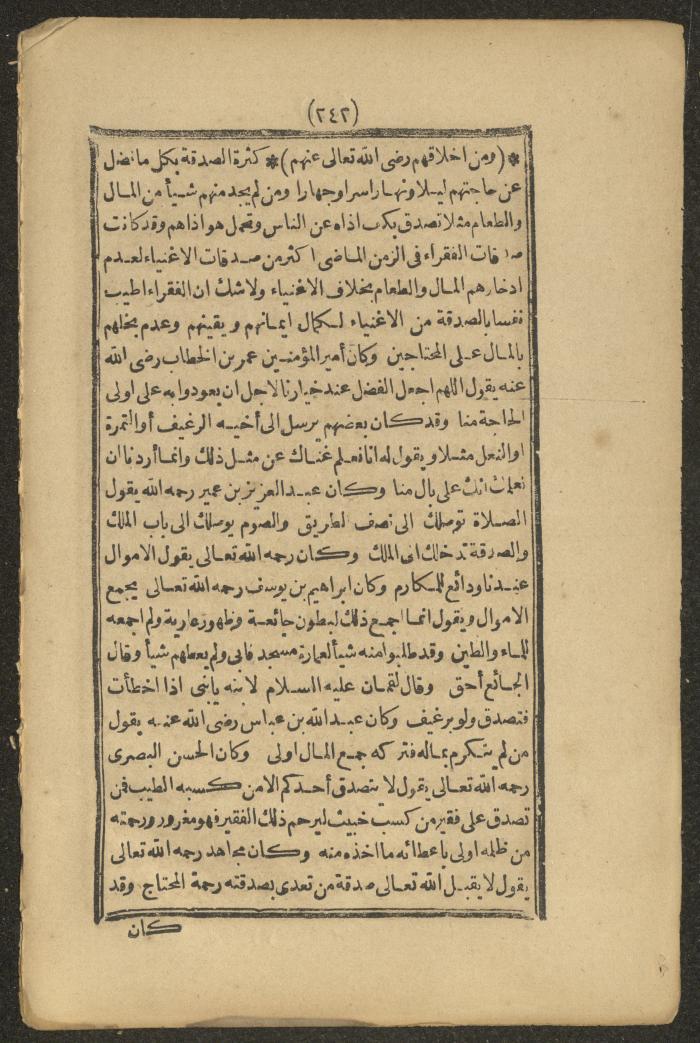 (٢٤٢)
*(ومن اخلاقهم رضى الله تعالى عنهم)* كثرة الصدقة بكل ما فضل
عن حاجتهم ليلا ونهارا سرا وجهارا ومن لم يجد منهم شيأ من المال
والطعام مثلا تصدق بكف اذاه عن الناس وتحمل هو اذاهم وقد كانت
صدقات الفقراء فى الزمن الماضى اكثر من صدقات الاغنياء لعدم
ادخارهم المال والطعام بخلاف الاغنياء ولا شك ان الفقراء اطيب
نفسا بالصدقة من الاغنياء لكمال ايمانهم ويقينهم وعدم بخلهم
بالمال على المحتاجين وكان أمير المؤمنين عمر بن الخطاب رضى الله
عنه يقول اللهم اجعل الفضل عند خيارنا لاجل ان يعودوا به على اولى
الحاجة منا وقد كان بعضهم يرسل الى أخيه الرغيف أو التمرة
او النعل مثلا ويقول له انا نعلم غناك عن مثل ذلك وانما أردنا ان
نعلمك انك على بال منا وكان عبد العزيز بن عمير رحمه الله يقول
الصلاة توصلك الى نصف الطريق والصوم يوصلك الى باب الملك
والصدقة تدخلك الى الملك وكان رحمه الله تعالى يقول الاموال
عندنا ودائع للمكارم وكان ابراهيم بن يوسف رحمه الله تعالى يجمع
الاموال ويقول انما اجمع ذلك لبطون جائعة وظهور عارية ولم اجمعه
للماء والطين وقد طلبوا منه شيأ لعمارة مسجد فابى ولم يعطهم شيأ وقال
الجائع أحق وقال لقمان عليه السلام لابنه يابنى اذا اخطأت
فتصدق ولو برغيف وكان عبد الله بن عباس رضى الله عنه يقول
من لم يتكرم بماله فتركه جمع المال اولى وكان الحسن البصرى
رحمه الله تعالى يقول لا يتصدق أحدكم الا من كسبه الطيب فمن
تصدق على فقير من كسب خبيث ليرحم ذلك الفقير فهو مغرور ورحمته
من ظلمه اولى باعطائه ما اخذه منه وكان مجاهد رحمه الله تعالى
يقول لا يقبل الله تعالى صدقة من تعدى بصدقته رحمة المحتاج وقد
كان